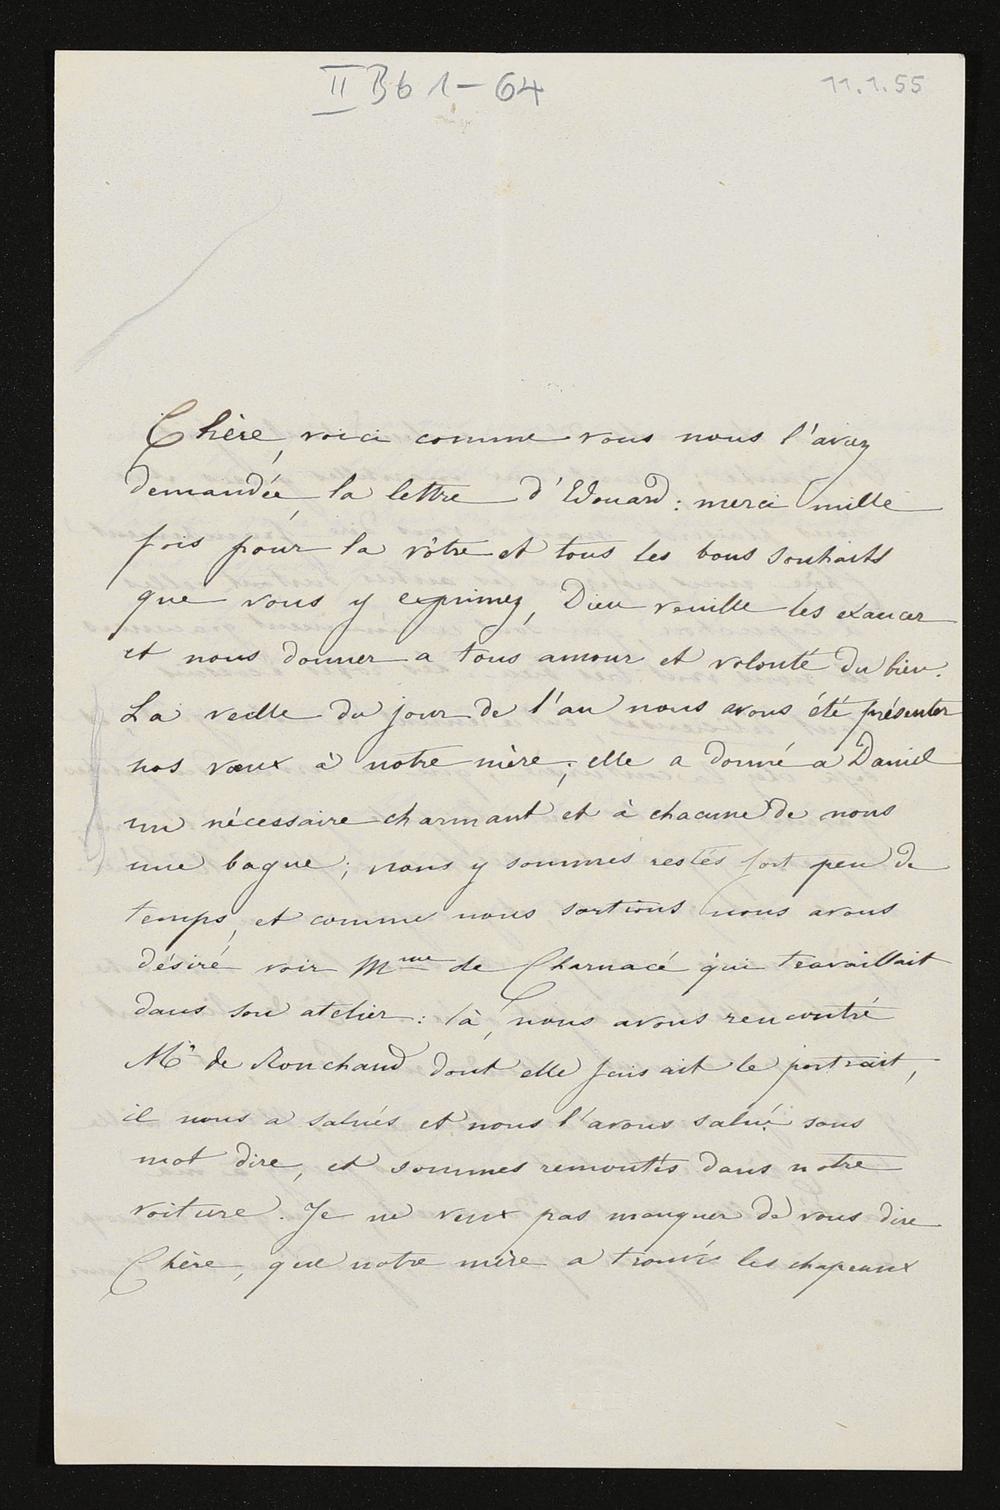 II Bb 1 - 64
11.1.55
Chère, voici comme vous nous l'avez
demandée, la lettre d'Edouard : merci mille
fois pour la vôtre et tous les bons souhaits
que vous y exprimez, Dieu veuille les exaucer
et nous donner a tous amour et volonté du bien.
La veille du jour de l'an nous avons été présenter
nos vœux à notre mère ; elle a donné a Daniel
un nécessaire charmant et à chacune de nous
une bague ; nous y sommes restés fort peu de
temps, et comme nous sortions nous avons
désiré voir Mme de Charnacé qui travaillait
dans son atelier : là, nous avons rencontré
Mr de Ronchaud dont elle faisait le portrait,
il nous a salués et nous l'avons salué sans
mot dire, et sommes remontés dans notre
voiture. Je ne veux pas manquer de vous dire
Chère, que notre mère a trouvé les chapeaux